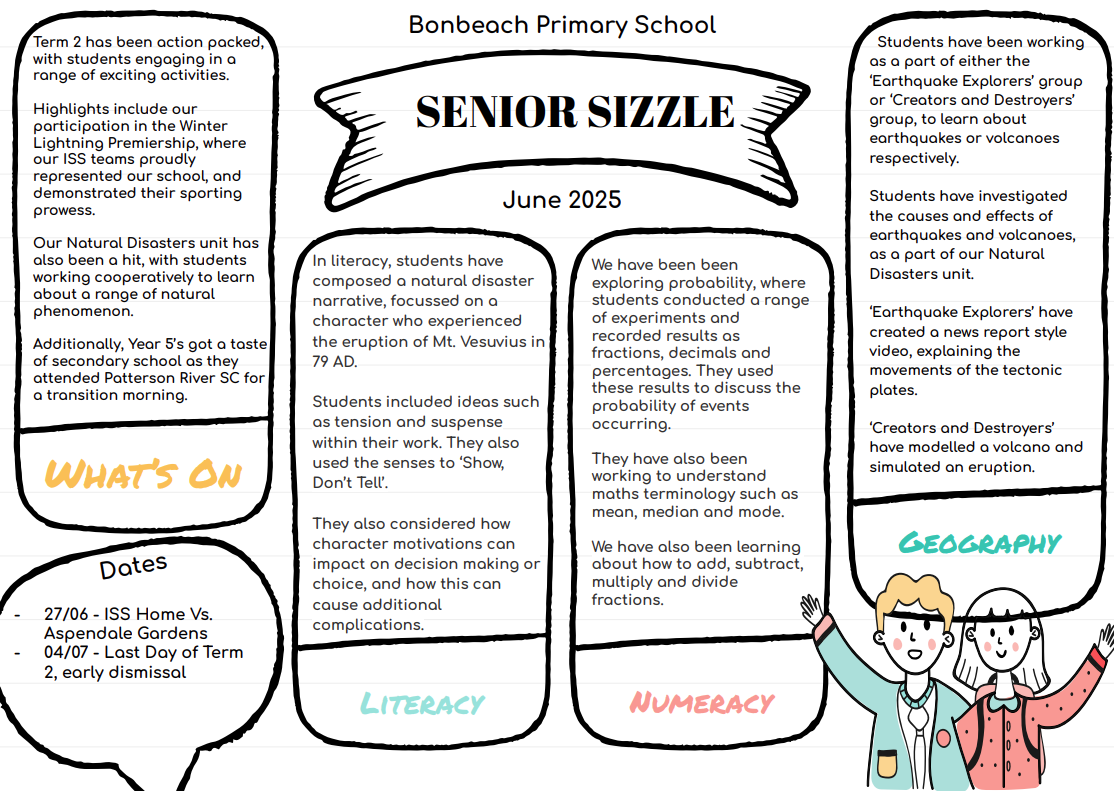 Bonbeach Primary School
SENIOR SIZZLE
June 2025
Term 2 has been action packed,
with students engaging in a
range of exciting activities.
Highlights include our
participation in the Winter
Lightning Premiership, where
our ISS teams proudly
represented our school, and
demonstrated their sporting
prowess.
Our Natural Disasters unit has
also been a hit, with students
working cooperatively to learn
about a range of natural
phenomenon.
Additionally, Year 5's got a taste
of secondary school as they
attended Patterson River SC for
a transition morning.
What's On
Dates
- 27/06 - ISS Home Vs.
Aspendale Gardens
- 04/07 - Last Day of Term
2, early dismissal
In literacy, students have
composed a natural disaster
narrative, focussed on a
character who experienced
the eruption of Mt. Vesuvius in
79 AD.
Students included ideas such
as tension and suspense
within their work. They also
used the senses to ‘Show,
Don't Tell’.
They also considered how
character motivations can
impact on decision making or
choice, and how this can
cause additional
complications.
Literacy
We have been been
exploring probability, where
students conducted a range
of experiments and
recorded results as
fractions, decimals and
percentages. They used
these results to discuss the
probability of events
occurring.
They have also been
working to understand
maths terminology such as
mean, median and mode.
We have also been learning
about how to add, subtract,
multiply and divide
fractions.
Numeracy
Students have been working
as a part of either the
‘Earthquake Explorers’ group
or ‘Creators and Destroyers’
group, to learn about
earthquakes or volcanoes
respectively.
Students have investigated
the causes and effects of
earthquakes and volcanoes,
as a part of our Natural
Disasters unit.
‘Earthquake Explorers’ have
created a news report style
video, explaining the
movements of the tectonic
plates.
‘Creators and Destroyers’
have modelled a volcano and
simulated an eruption.
Geography